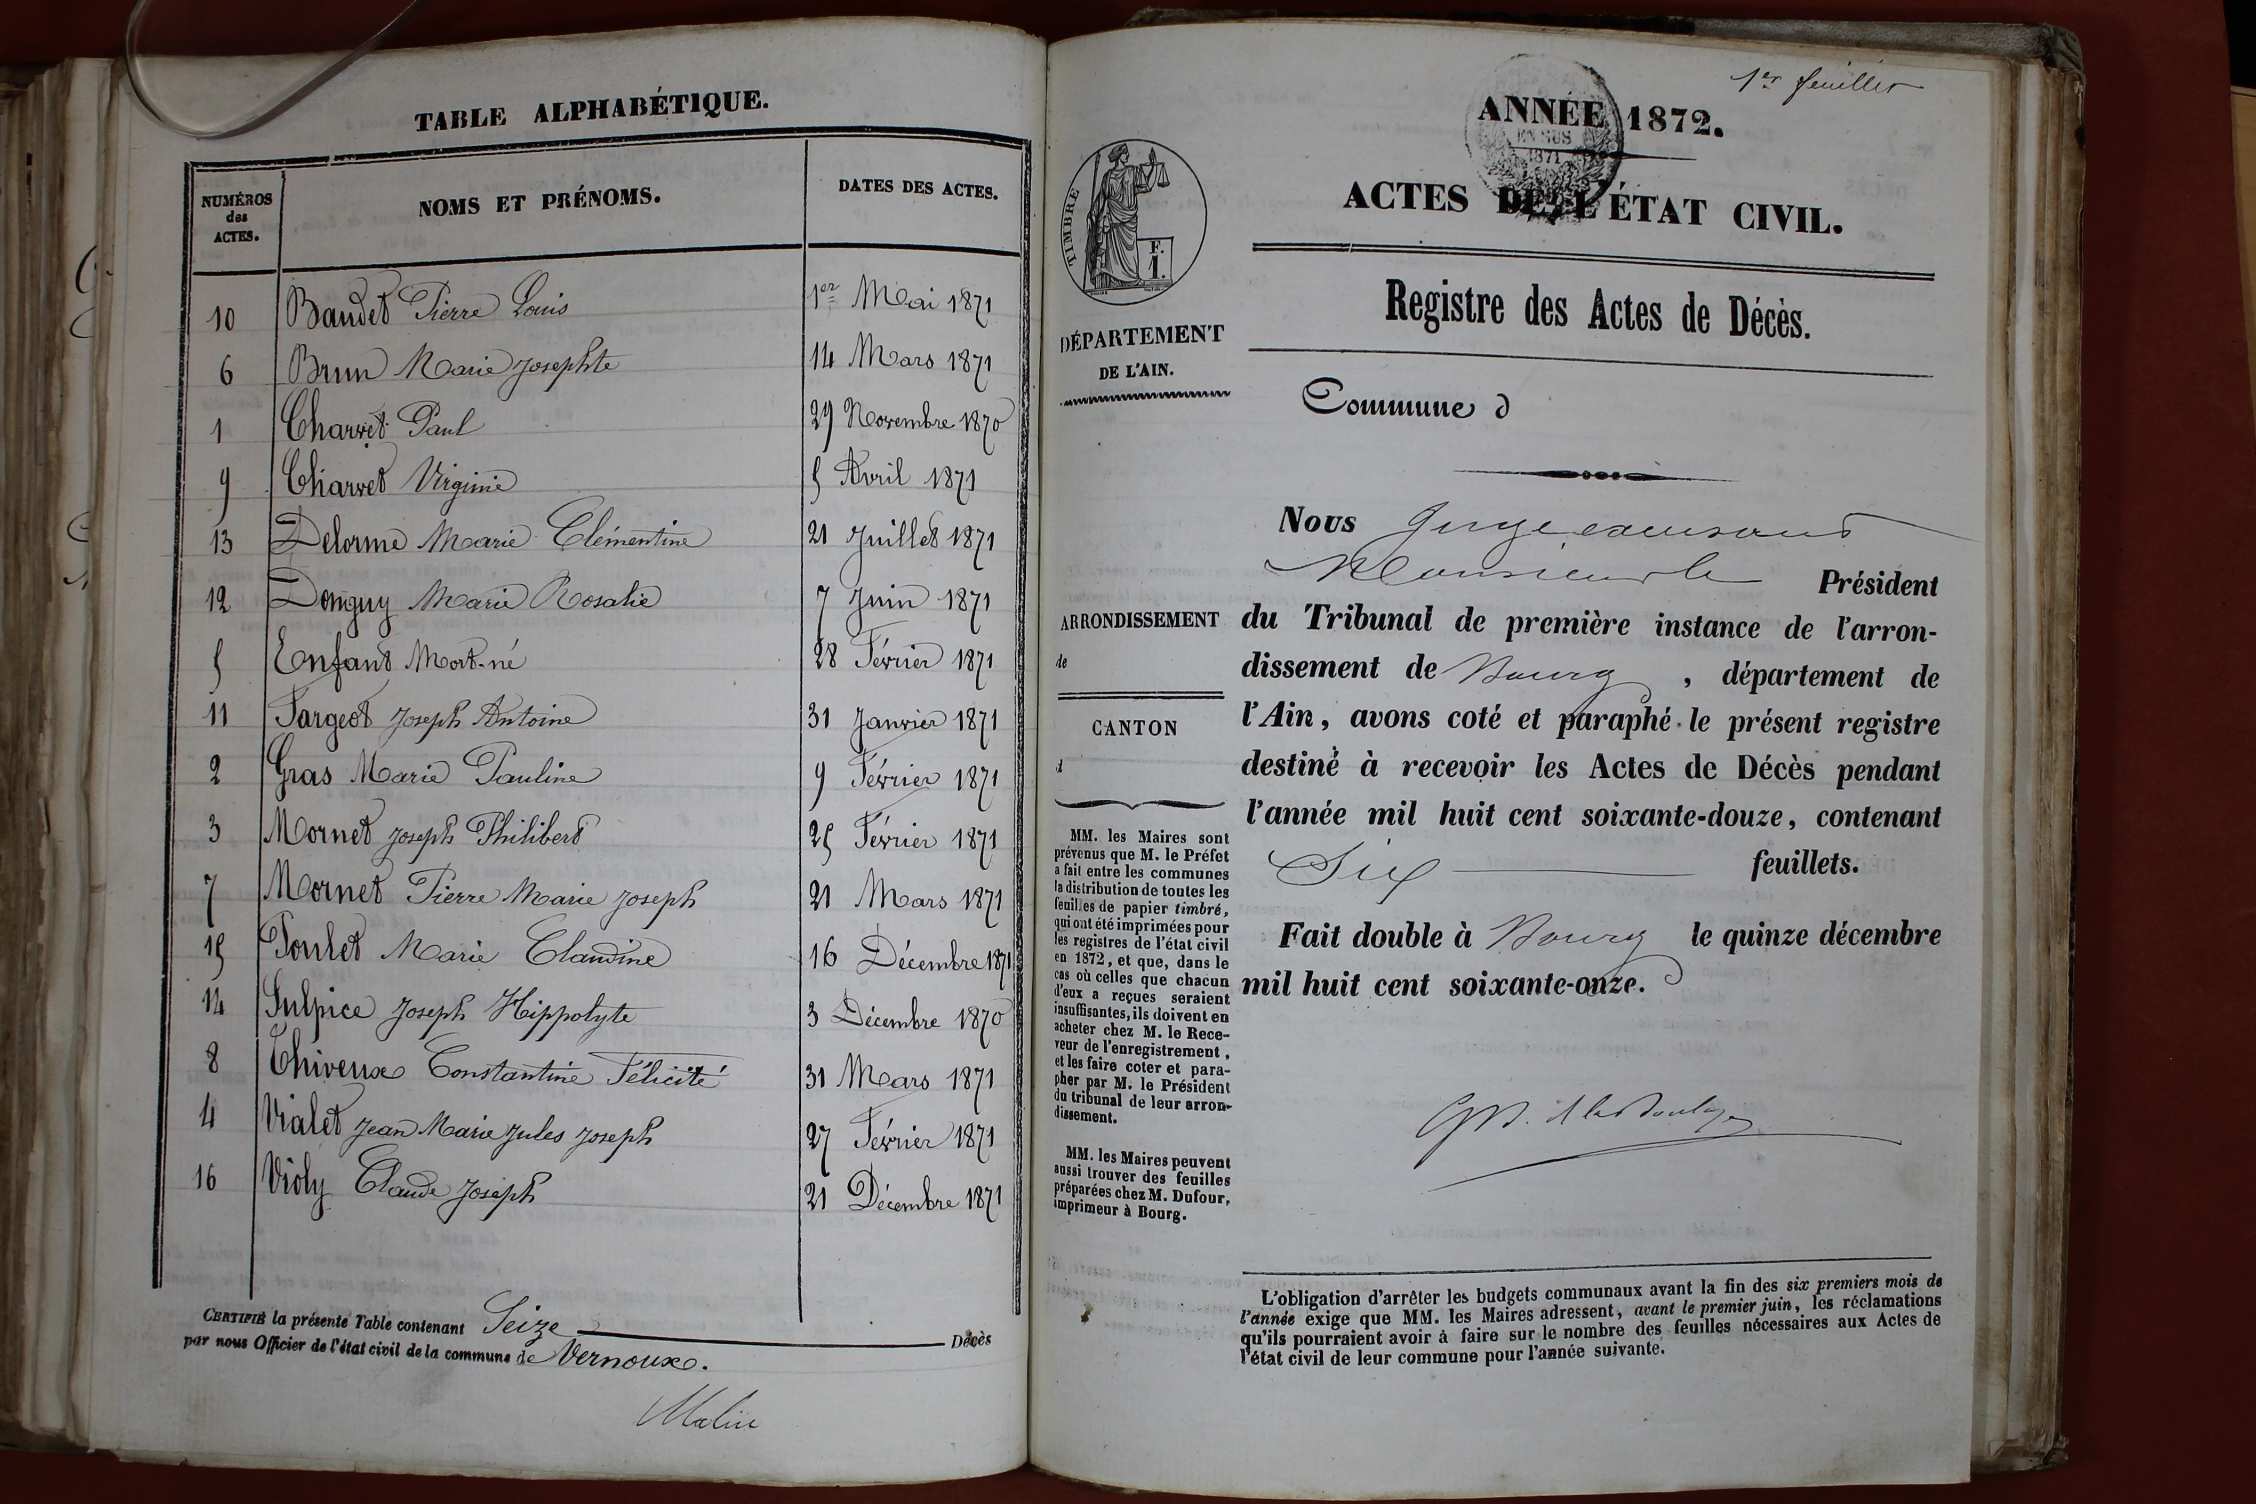 TABLE ALPHABÉTIQUE.
NUMÉROS des ACTES. NOMS ET PRÉNOMS. DATES DES ACTES.
10 Baudet Pierre Louis 1er Mai 1871
6 Brun Marie Josephte 14 Mars 1871
1 Charvet Paul 29 Novembre 1870
9 Charvet Virginie 5 Avril 1871
13 Delorme Marie Clémentine 21 Juillet 1871
12 Donguy Marie Rosalie 7 Juin 1871
5 Enfant Mort-né 28 Février 1871
11 Fargeot Joseph Antoine 31 Janvier 1871
2 Gras Marie Pauline 9 Février 1871
3 Mornet Joseph Philibert 25 Février 1871
7 Mornet Pierre Marie Joseph 21 Mars 1871
15 Poulet Marie Claudine 16 Décembre 1871
14 Sulpice Joseph Hippolyte 3 Décembre 1870
8 Thiveux Constantine Félicité 31 Mars 1871
4 Vialet Jean Marie Jules Joseph 27 Février 1871
16 Violy Claude Joseph 21 Décembre 1871
CERTIFIÉ la présente Table contenant Seize Décès
par nous Officier de l'état civil de la commune de Vernoux.
1er feuillet
ANNÉE 1872.
EN SUS
1871
ACTES DE L'ÉTAT CIVIL.
TIMBRE
F.
1.
DÉPARTEMENT
DE L'AIN.
ARRONDISSEMENT
de
CANTON
d
MM. les Maires sont
prévenus que M. le Préfet
a fait entre les communes
la distribution de toutes les
feuilles de papier timbré,
qui ont été imprimées pour
les registres de l'état civil
en 1872, et que, dans le
cas où celles que chacun
d'eux a reçues seraient
insuffisantes, ils doivent en
acheter chez M. le Rece-
veur de l'enregistrement,
et les faire coter et para-
pher par M. le Président
du tribunal de leur arron-
dissement.
MM. les Maires peuvent
aussi trouver des feuilles
préparées chez M. Dufour,
imprimeur à Bourg.
Registre des Actes de Décès.
Commune d
Nous Juge
Monsieur le Président
du Tribunal de première instance de l'arron-
dissement de Bourg, département de
l'Ain, avons coté et paraphé le présent registre
destiné à recevoir les Actes de Décès pendant
l'année mil huit cent soixante-douze, contenant
Six feuillets.
Fait double à Bourg le quinze décembre
mil huit cent soixante-onze.
L'obligation d'arrêter les budgets communaux avant la fin des six premiers mois de
l'année exige que MM. les Maires adressent, avant le premier juin, les réclamations
qu'ils pourraient avoir à faire sur le nombre des feuilles nécessaires aux Actes de
l'état civil de leur commune pour l'année suivante.